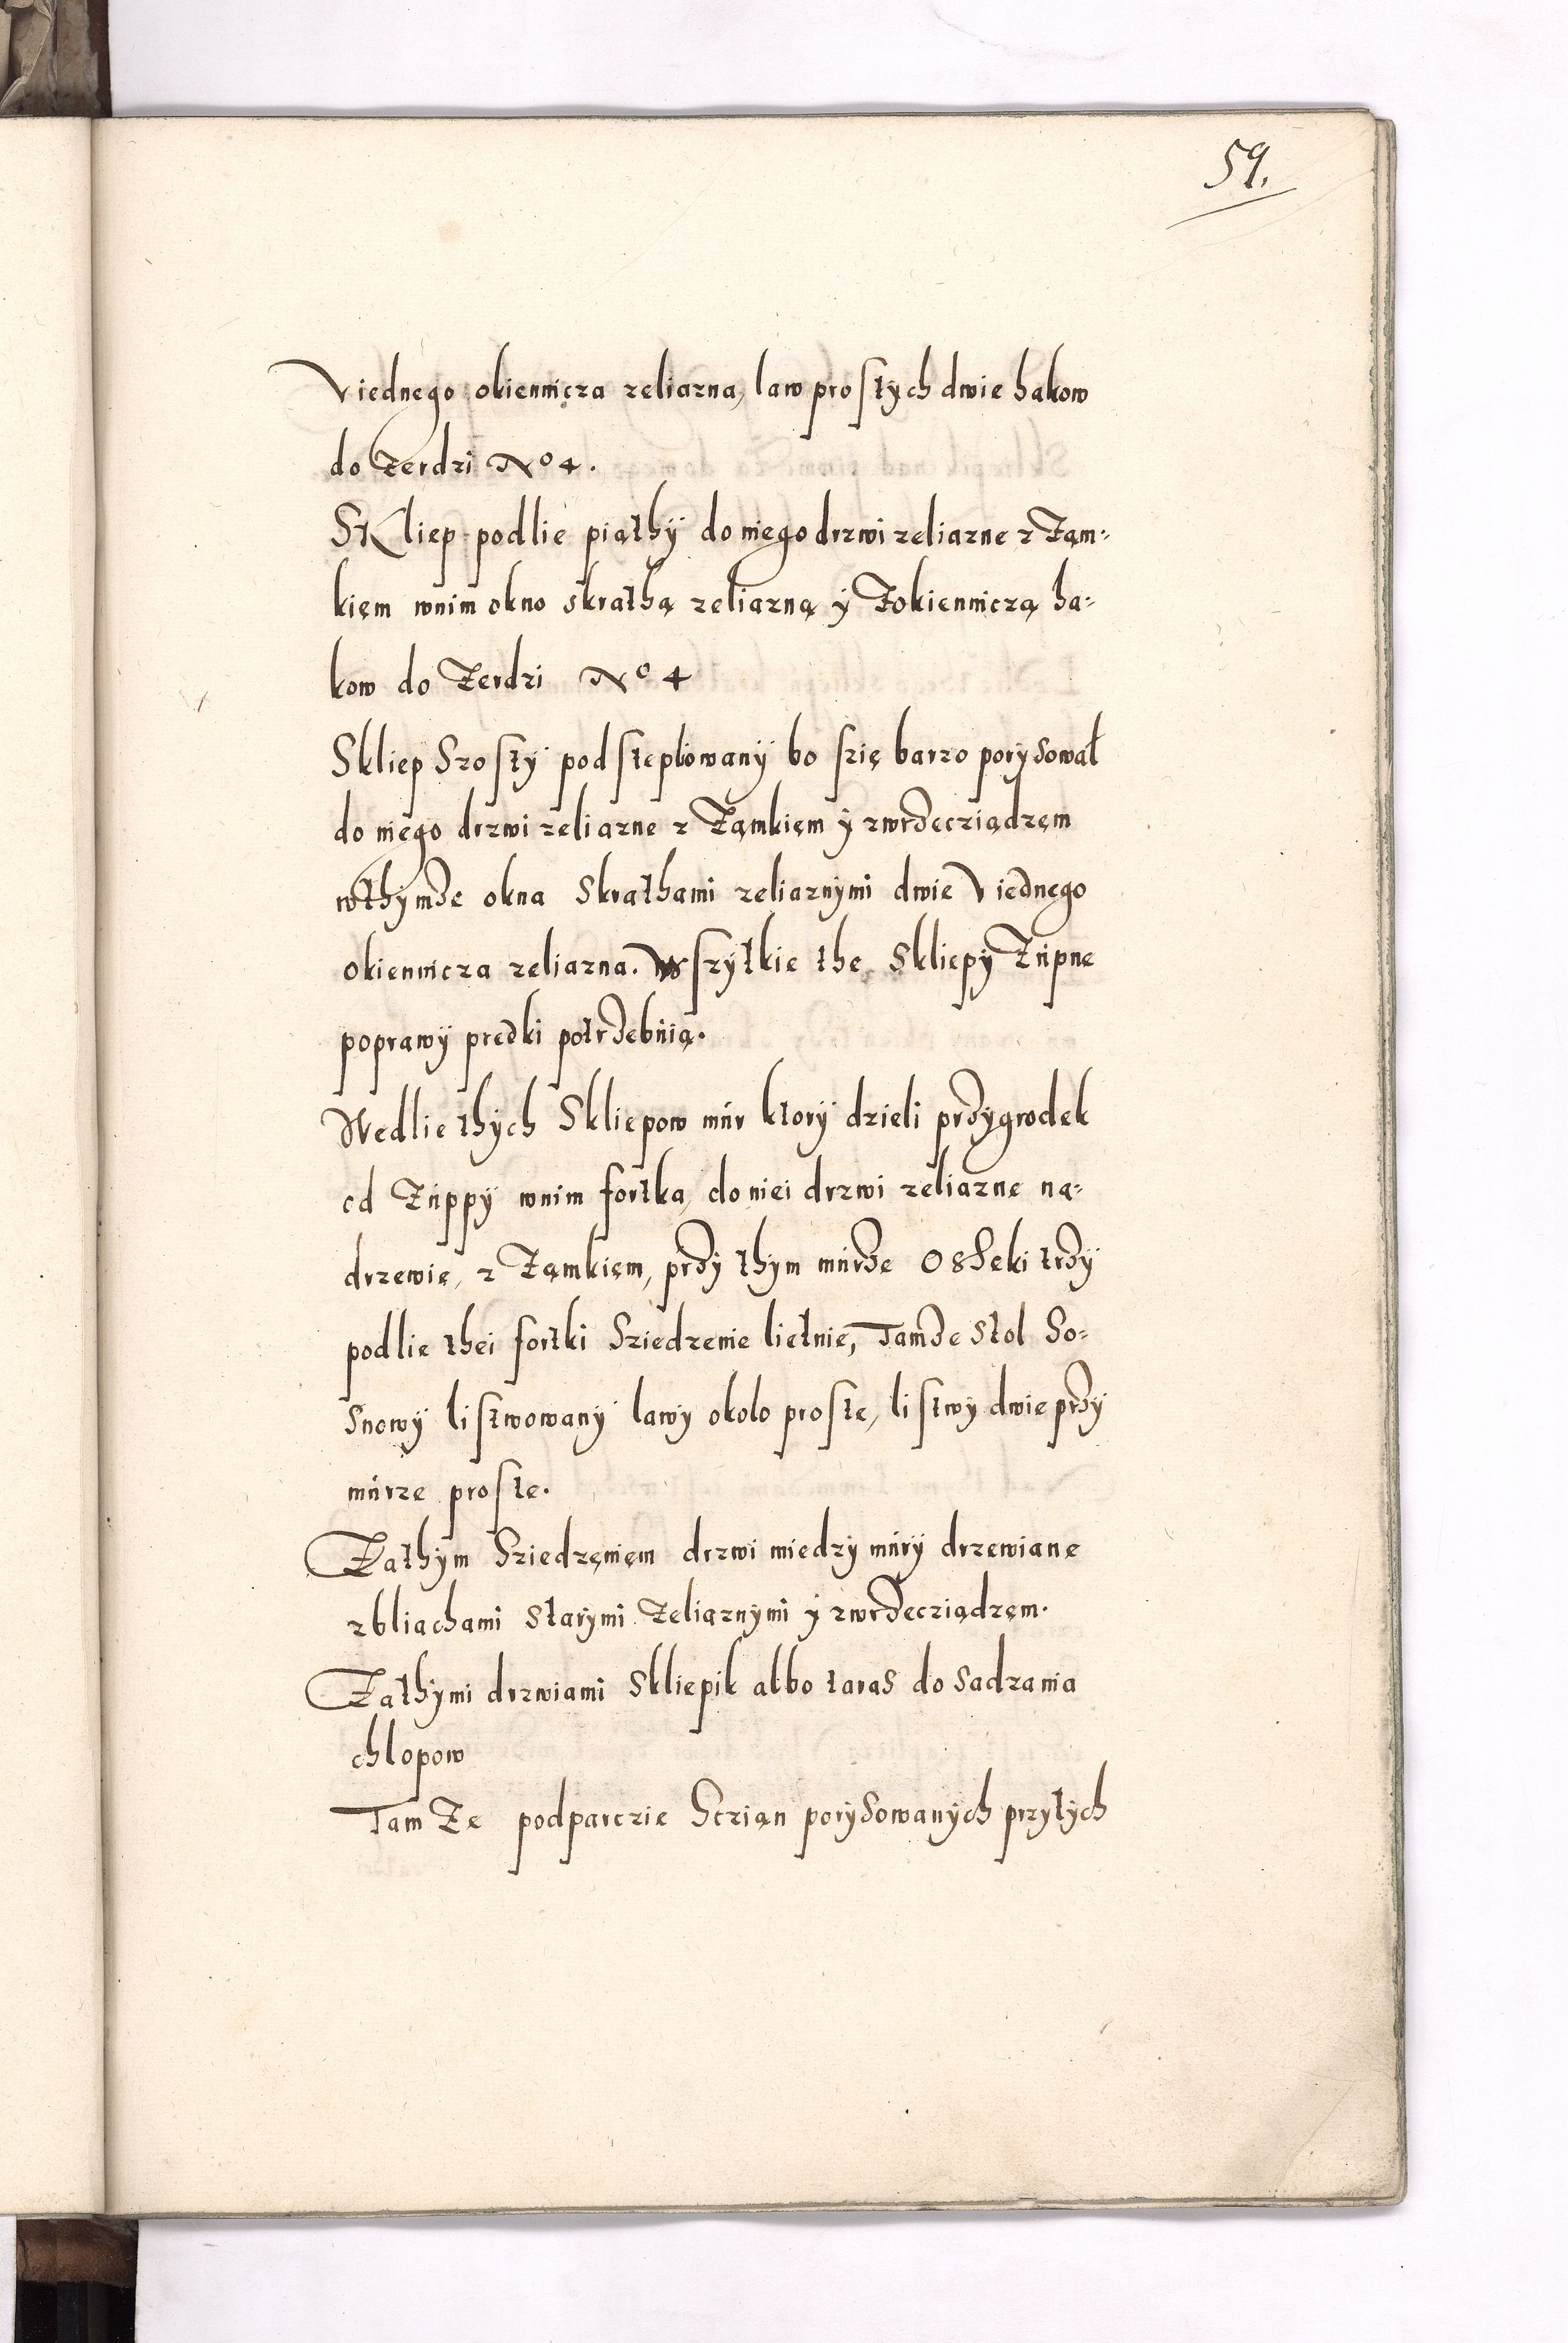 59.
V iednego okiennicza zeliazna, law prostych dwie hakow
do Zerdzi No 4.
SKliep podlie piąthÿ do niego drzwi zeliazne z Zam-
kięm wnim okno skrathą zeliazną ÿ Zokienniczą ha-
kow do Zerdzi No 4
Skliep Szostÿ podsteplowanÿ bo szię barzo porÿsował
do niego drzwi zeliazne z Ząmkięm ÿ zwrzecziądzęm
wthÿmze okna Skrathami zeliaznÿmi dwie V iednego
okiennicza zeliazna. Wszÿtkie the Skliepÿ Zupne
poprawÿ prędki potrzebuią.
Wedlie thÿch Skliepow mur ktorÿ dzieli przygrodek
od Zuppÿ wnim fortka, do niei drzwi zeliazne na-
drzewie, z Ząmkięm, przÿ thÿm murze Osseki trzÿ
podlie thei fortki Sziedzenie lietnie, Tamze Stol So-
Snowÿ listwowanÿ lawÿ okolo proste, listwÿ dwie przÿ
murze proste.
Zathÿm Sziedzęnięm drzwi miedzy murÿ drzewiane
z bliachami Starÿmi Zeliaznÿmi ÿ zwrzecziądzęm.
Zathÿmi drzwiami Skliepik albo taras do sadzania
chlopow
Tam Ze podparczie Sczian porÿsowanÿch przytÿch